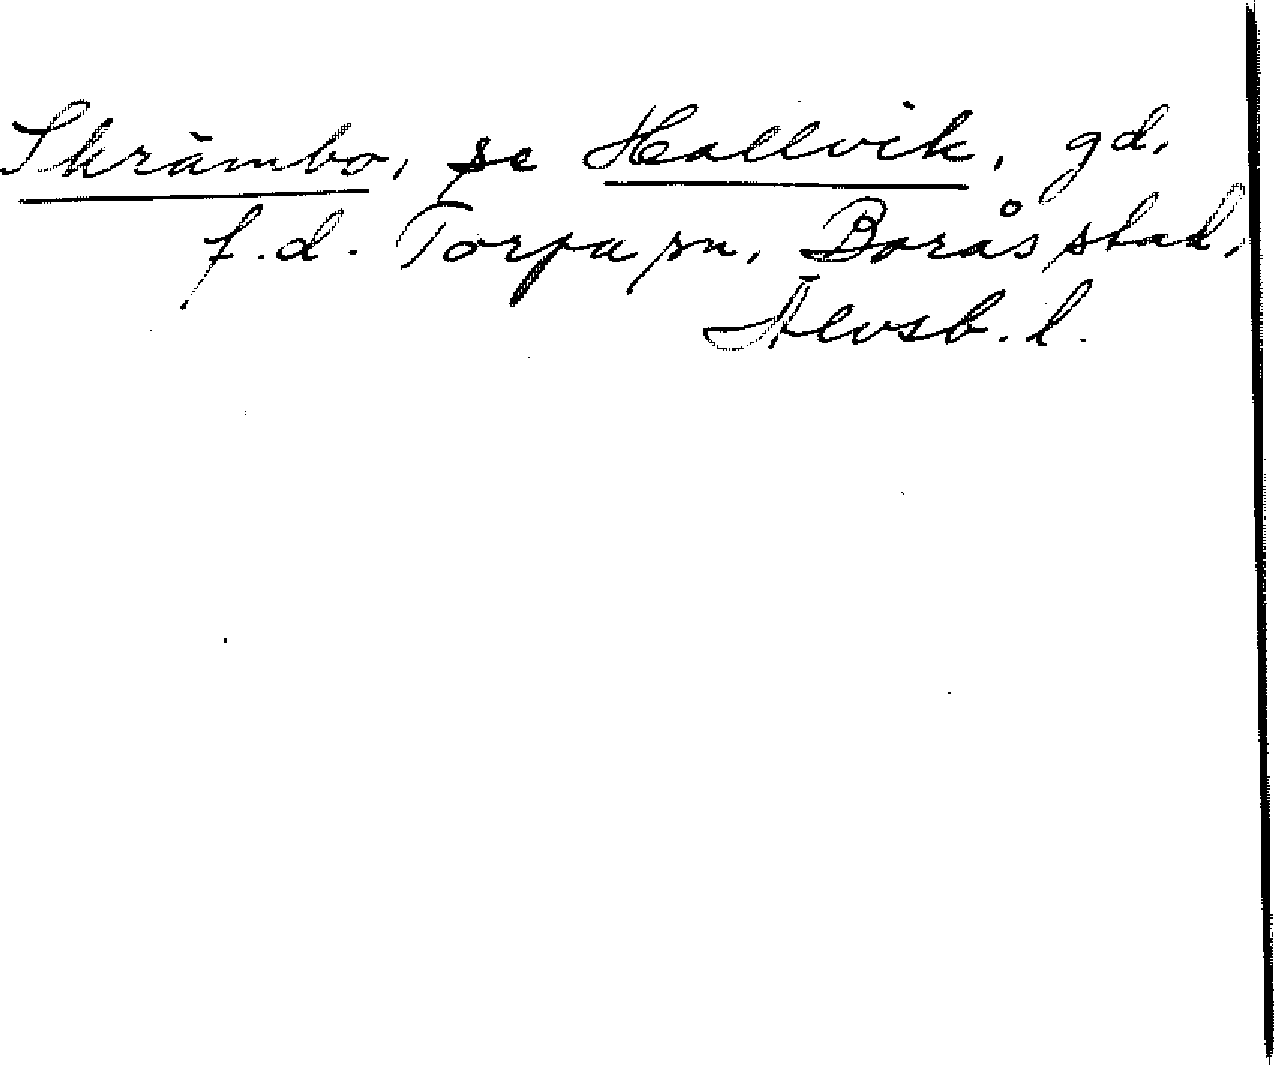 Skrämbo, se Hallvik, gd,
f.d. Torpa sn, Borås stad,
Älvsb. l.